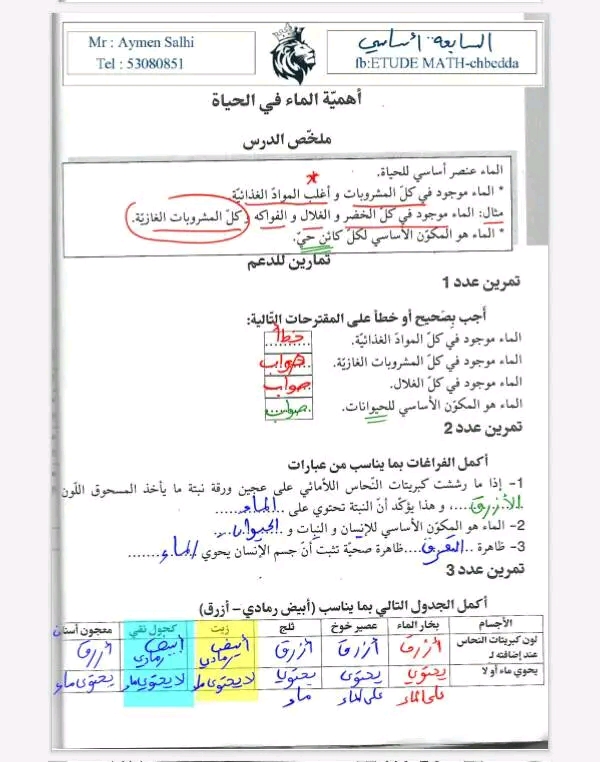 Mr : Aymen Salhi
Tel : 53080851
السابعة أساسي
fb:ETUDE MATH-chbedda
أهميّة الماء في الحياة
ملخّص الدرس
الماء عنصر أساسي للحياة.
* الماء موجود في كلّ المشروبات و أغلب الموادّ الغذائيّة
مثال: الماء موجود في كلّ الخضر و الغلال و الفواكه و كلّ المشروبات الغازيّة.
* الماء هو المكوّن الأساسي لكلّ كائن حيّ.
تمارين للدعم
تمرين عدد 1
أجب بِصَحيح أو خطأ على المقترحات التّالية:
الماء موجود في كلّ الموادّ الغذائيّة. خطأ
الماء موجود في كلّ المشروبات الغازيّة. صواب
الماء موجود في كلّ الغلال. صواب
الماء هو المكوّن الأساسي للحيوانات. صواب
تمرين عدد 2
أكمل الفراغات بما يناسب من عبارات
1- إذا ما رششت كبريتات النّحاس اللاّمائي على عجين ورقة نبتة ما يأخذ المسحوق اللّون
الأزرق......، و هذا يؤكّد أنّ النبتة تحتوي على ..الماء......
2- الماء هو المكوّن الأساسي للإنسان و النبات و ..الحيوان...
3- ظاهرة ..التعرق....ظاهرة صحيّة تثبت أنّ جسم الإنسان يحوي الماء........
تمرين عدد 3
أكمل الجدول التالي بما يناسب (أبيض رمادي– أزرق)
الأجسام بخار الماء عصير خوخ ثلج زيت كحول نقي معجون أسنان
لون كبريتات النحاس عند إضافته لـ أزرق أزرق أزرق أبيض رمادي أبيض رمادي أزرق
يحوي ماء أو لا يحتوي على الماء يحتوي على الماء يحتوي ماء لا يحتوي ماء لا يحتوي ماء يحتوي ماء